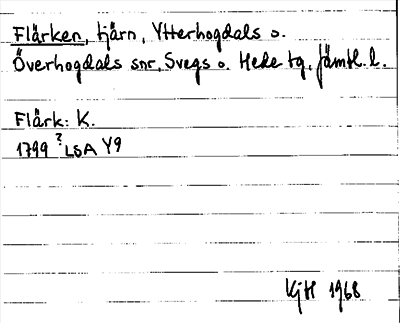 Flärken, tjärn, Ytterhogdals o.
Överhogdals snr, Svegs o. Hede tg, Jämtl. l.
Flärk: K.
1799 ? LSA Y9
KjH 1968